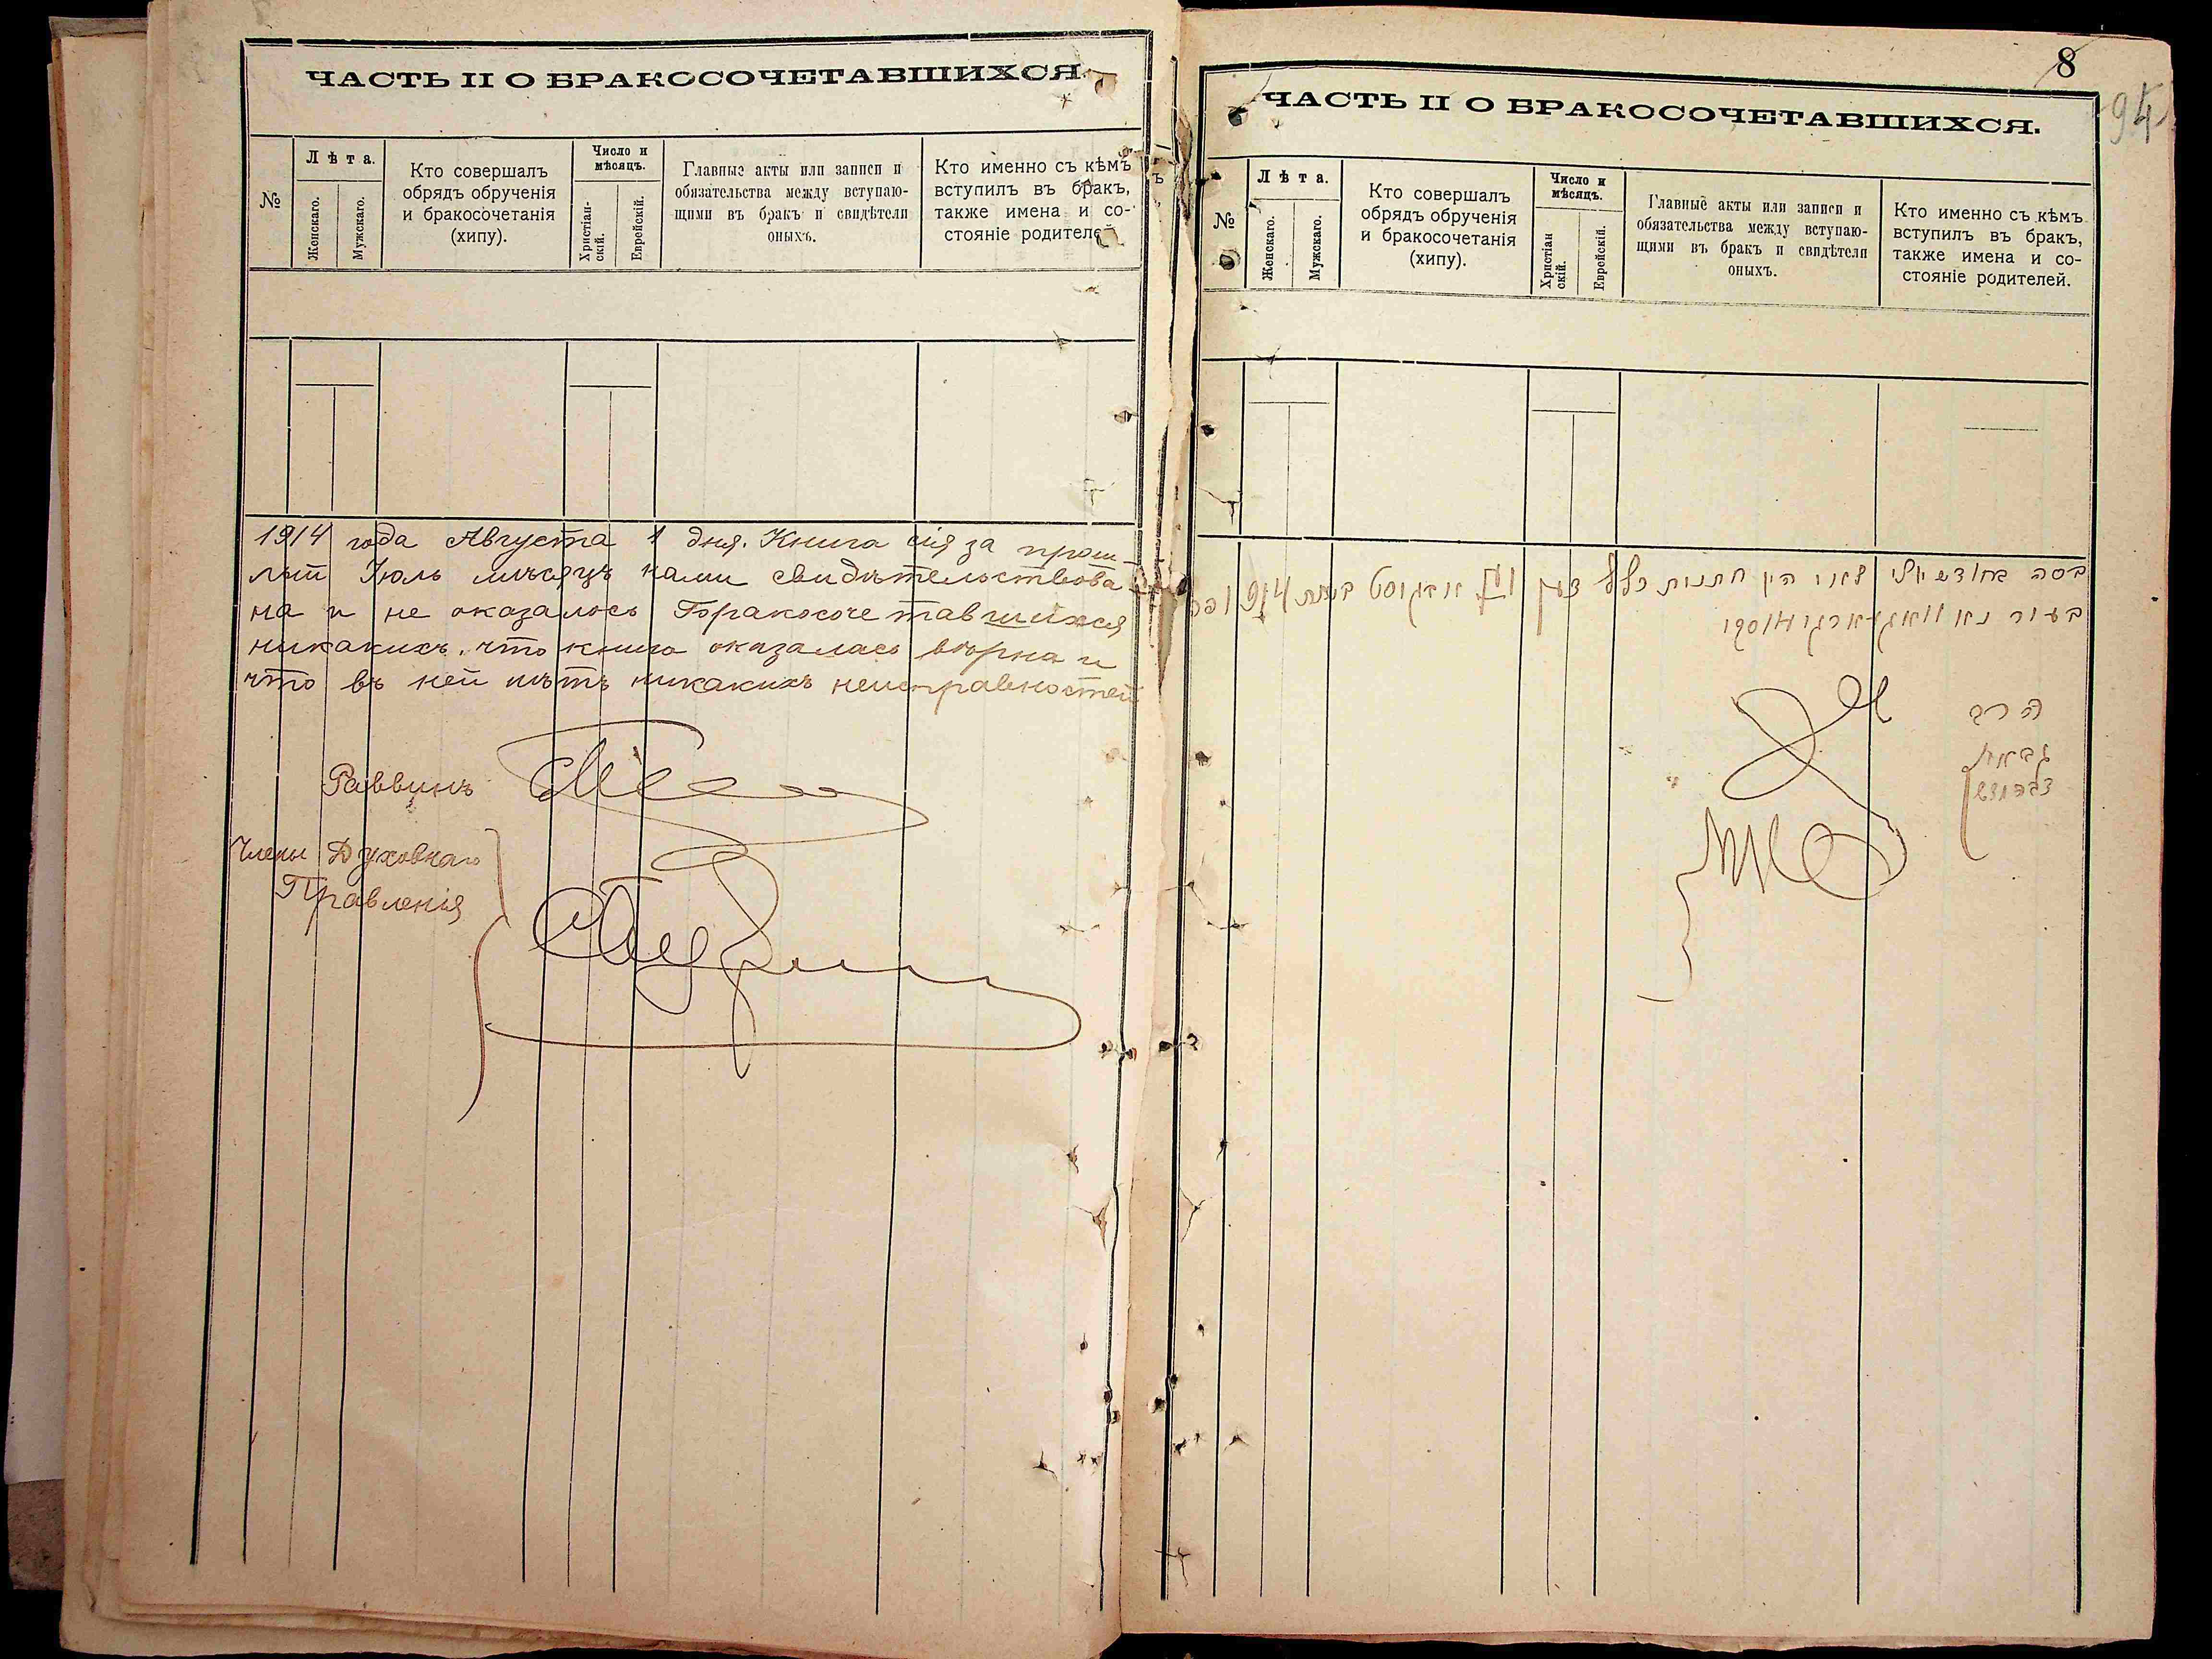 ЧАСТЬ II О БРАКОСОЧЕТАВШИХСЯ.
№
Лѣта.
Женскаго.
Мужскаго.
Кто совершалъ
обрядъ обрученія
и бракосочетанія
(хипу).
Число и
мѣсяцъ.
Христіан-
скій.
Еврейскій.
Главные акты или записи и
обязательства между вступаю-
щими въ бракъ и свидѣтели
оныхъ.
Кто именно съ кѣмъ
вступилъ въ бракъ,
также имена и со-
стояніе родителей
1914 года Августа 1 дня. Книга сія за прош-
лый Юль мѣсяцъ нами свидѣтельствова
на и не оказалось Бракосочетавшихся
никакихъ, что книга оказалась вѣрна и
что въ ней нѣтъ никакихъ неисправностей
Раввинъ
Члены Духовнаго
Правленія
8
94
ЧАСТЬ II О БРАКОСОЧЕТАВШИХСЯ.
№
Лѣта.
Женскаго.
Мужскаго.
Кто совершалъ
обрядъ обрученія
и бракосочетанія
(хипу).
Число и
мѣсяцъ.
Христіан
скій.
Еврейскій.
Главные акты или записи и
обязательства между вступаю-
щими въ бракъ и свидѣтели
оныхъ.
Кто именно съ кѣмъ
вступилъ въ бракъ,
также имена и со-
стояніе родителей.
בחודש יולי לא היו חתונות כלל אויגוסט בשנת 1914
הרב
גבאי